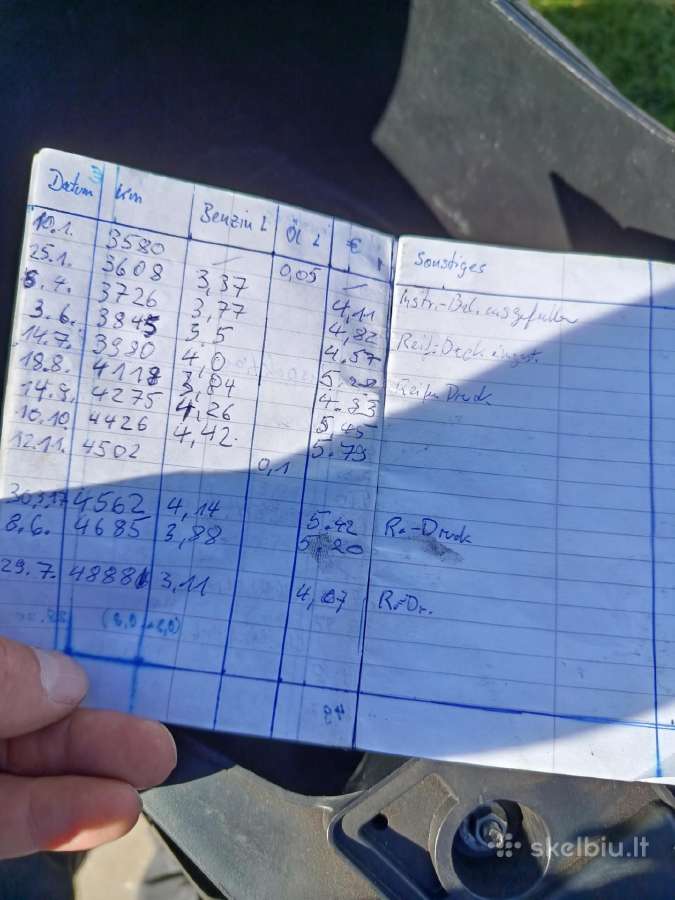 Datum km Benzin L Öl L € Sonstiges
10.1. 3580 — 0,05 —
25.1. 3608 3,37 4,11
6.4. 3726 3,77 4,82
3.6. 3845 3,5 4.57
14.7. 3980 4,0 5,20
18.8. 4118 3,84 4.93 Reifen Druck
14.9. 4275 4,26 5,45
10.10. 4426 4,42 5.79
12.11. 4502 0,1
30.3.17 4562 4,14 5.42 R.-Druck
8.6. 4685 3,88 5,20
29.7. 4888 3,11 4,07 R.-Dr.
skelbiu.lt